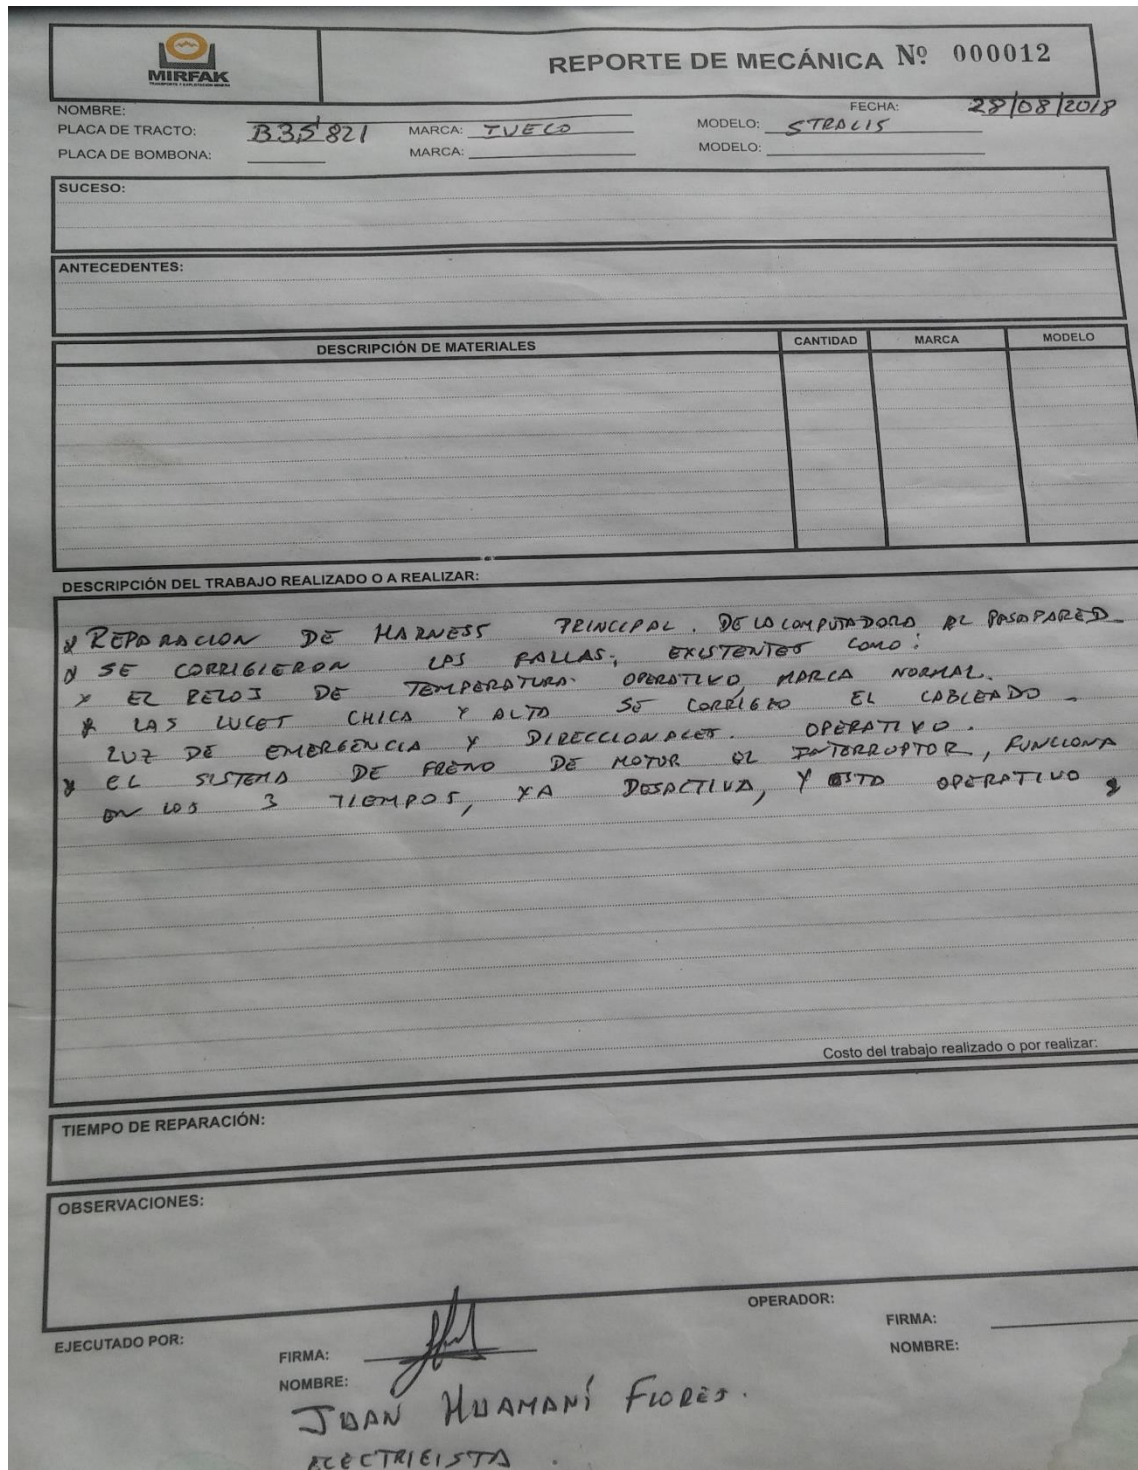 MIRFAK
TRANSPORTE Y EXPLOTACIÓN MINERA
REPORTE DE MECÁNICA Nº 000012
NOMBRE:
FECHA: 28/08/2018
PLACA DE TRACTO: B35 821 MARCA: IVECO MODELO: STRALIS
PLACA DE BOMBONA: MARCA: MODELO:
SUCESO:
ANTECEDENTES:
DESCRIPCIÓN DE MATERIALES CANTIDAD MARCA MODELO
DESCRIPCIÓN DEL TRABAJO REALIZADO O A REALIZAR:
REPARACION DE HARNESS PRINCIPAL. DE LA COMPUTADORA AL PASAPARED
SE CORRIGIERON LAS FALLAS, EXISTENTES COMO:
EL RELOJ DE TEMPERATURA OPERATIVO, MARCA NORMAL.
LAS LUCES CHICA Y ALTA SE CORRIGIO EL CABLEADO
LUZ DE EMERGENCIA Y DIRECCIONALES. OPERATIVO.
EL SISTEMA DE FRENO DE MOTOR EL INTERRUPTOR, FUNCIONA
EN LOS 3 TIEMPOS, YA DESACTIVA, Y ESTA OPERATIVO
Costo del trabajo realizado o por realizar:
TIEMPO DE REPARACIÓN:
OBSERVACIONES:
EJECUTADO POR: OPERADOR:
FIRMA: FIRMA:
NOMBRE: NOMBRE:
JUAN HUAMANÍ FLORES.
ELECTRICISTA.